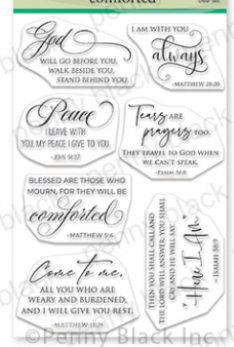 comforted
God
WILL GO BEFORE YOU,
WALK BESIDE YOU,
STAND BEHIND YOU.
I AM WITH YOU
always.
-MATTHEW 28:20
Peace
I LEAVE WITH
YOU, MY PEACE I GIVE TO YOU.
-JOHN 14:27
Tears ARE
prayers TOO.
THEY TRAVEL TO GOD WHEN
WE CAN'T SPEAK.
-PSALM 56:8
BLESSED ARE THOSE WHO
MOURN, FOR THEY WILL BE
comforted
-MATTHEW 5:4
Come to me,
ALL YOU WHO ARE
WEARY AND BURDENED,
AND I WILL GIVE YOU REST.
-MATTHEW 11:28
THEN YOU SHALL CALL, AND
THE LORD WILL ANSWER; YOU SHALL
CRY AND HE WILL SAY
"Here I AM"
-ISAIAH 58:9
©Penny Black Inc.